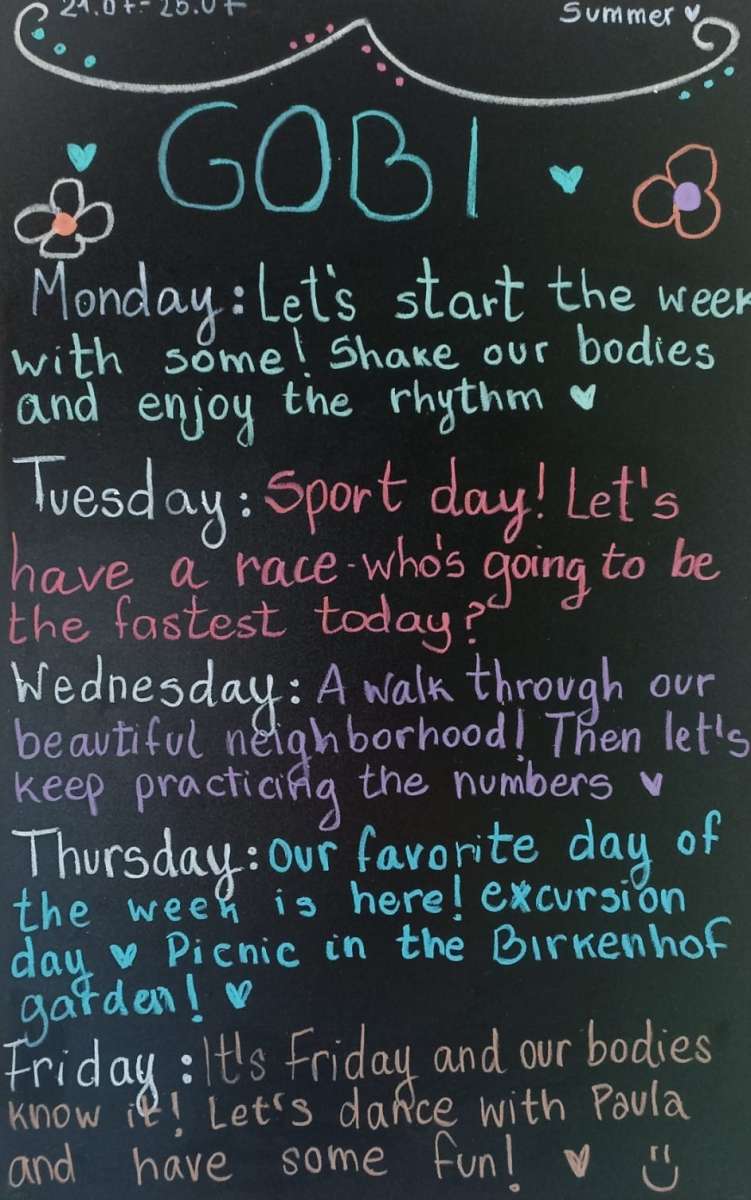 21.07-25.07 Summer ♥
GOBI
Monday: Let's start the week
with some! Shake our bodies
and enjoy the rhythm ♥
Tuesday: Sport day! Let's
have a race-who's going to be
the fastest today?
Wednesday: A walk through our
beautiful neighborhood! Then let's
keep practicing the numbers ♥
Thursday: Our favorite day of
the week is here! excursion
day ♥ Picnic in the Birkenhof
garden! ♥
Friday: It's Friday and our bodies
know it! Let's dance with Paula
and have some fun! ♥ ü